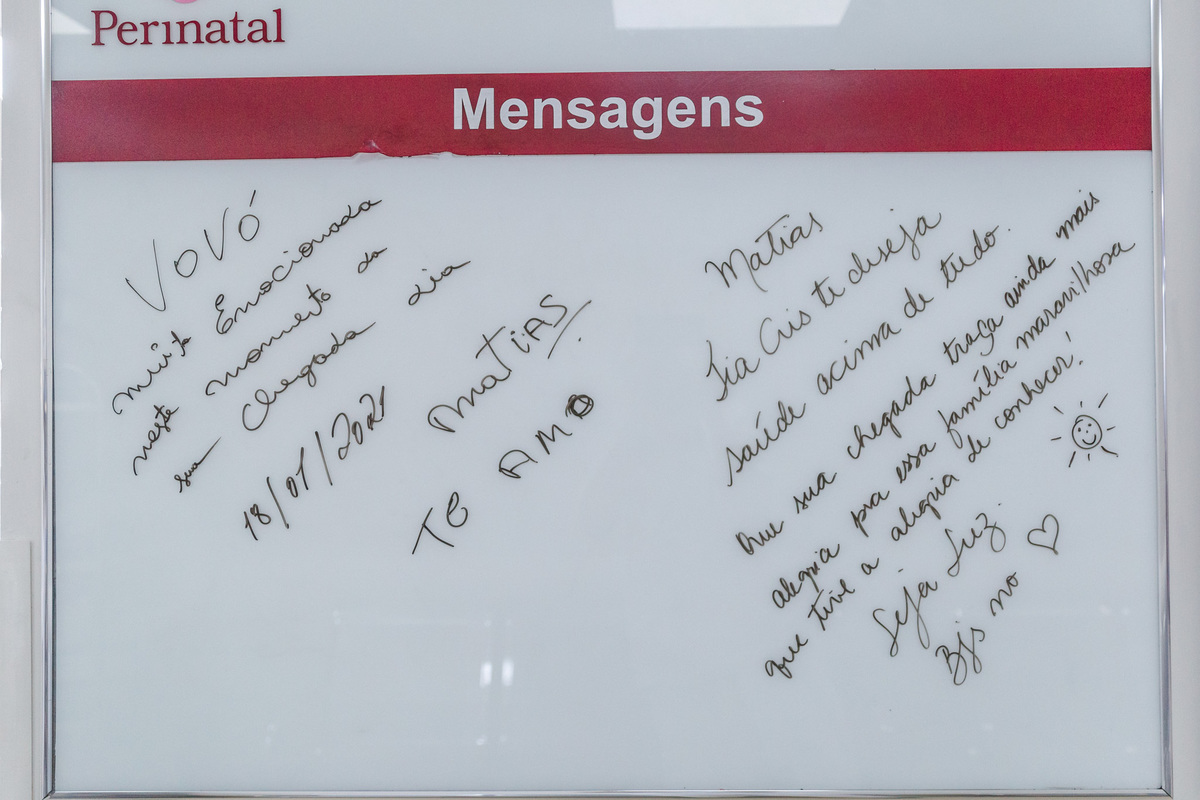 Perinatal
Mensagens
VOVÓ
muito Emocionada
neste momento da
sua chegada dia
18/01/2021
MATIAS
TE AMO
Matias
Tia Cris te deseja
saúde acima de tudo.
Que sua chegada traga ainda mais
alegria pra essa família maravilhosa
que tive a alegria de conhecer!
Seja Luz.
Bjs no ♡